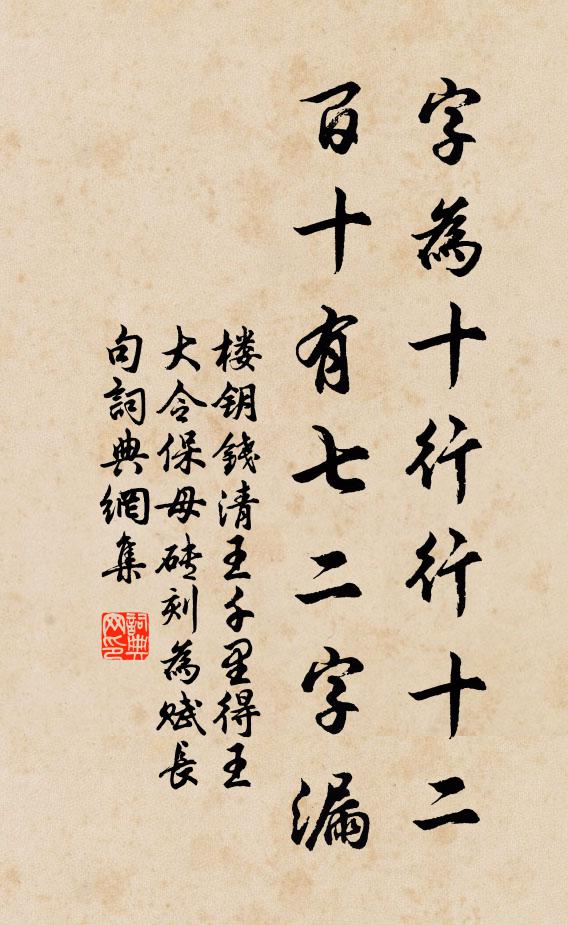 字為十行行十二
百十有七二字漏
楼钥錢清王千里得王
大令保母砖刻為赋長
句詞典網集
詞典网印